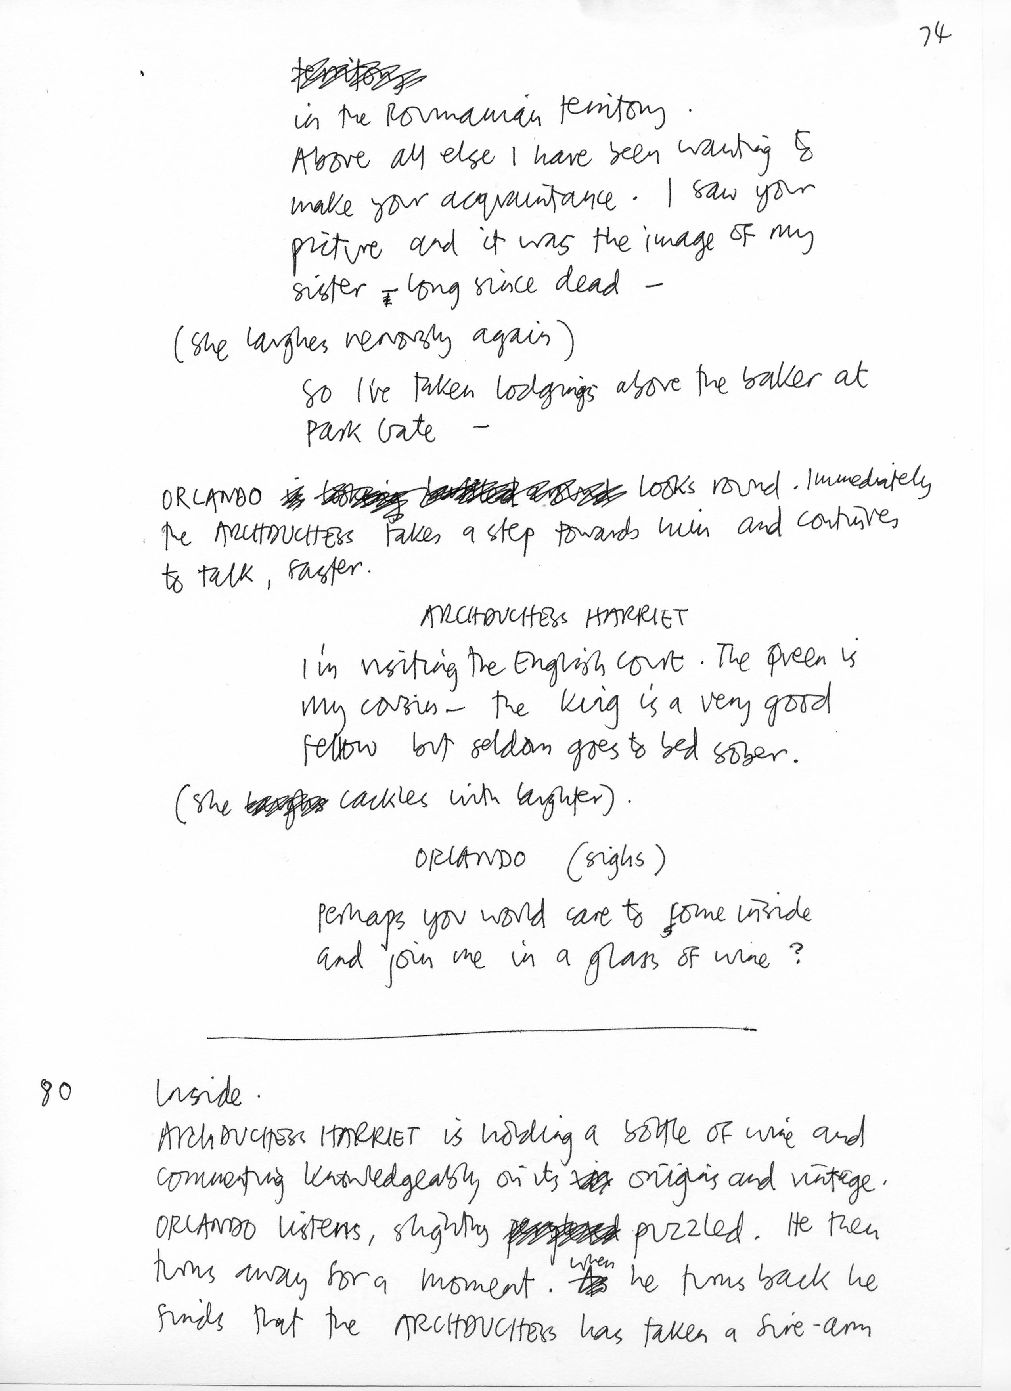 74
territory
in the Roumanian territory.
Above all else I have been wanting to
make your acquaintance. I saw your
picture and it was the image of my
sister - long since dead —
(she laughes nervously again)
So I've taken lodgings above the baker at
Park Gate —
ORLANDO is looking around looks round. Immediately
the ARCHDUCHESS takes a step towards him and continues
to talk, faster.
ARCHDUCHESS HARRIET
I'm visiting the English court. The Queen is
my cousin — the King is a very good
fellow but seldom goes to bed sober.
(she laughs cackles with laughter).
ORLANDO (sighs)
Perhaps you would care to come inside
and join me in a glass of wine?
80 Inside.
ARCHDUCHESS HARRIET is holding a bottle of wine and
commenting knowledgeably on its origins and vintage.
ORLANDO listens, slightly perplexed puzzled. He then
turns away for a moment. when he turns back he
finds that the ARCHDUCHESS has taken a fire-arm